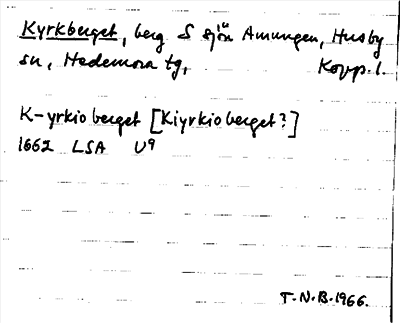 Kyrkberget, berg S sjön Amungen, Husby
sn, Hedemora tg, Kopp. l.
K-yrkio berget [Kiyrkio berget?]
1662 LSA U9
T.N.B. 1966.